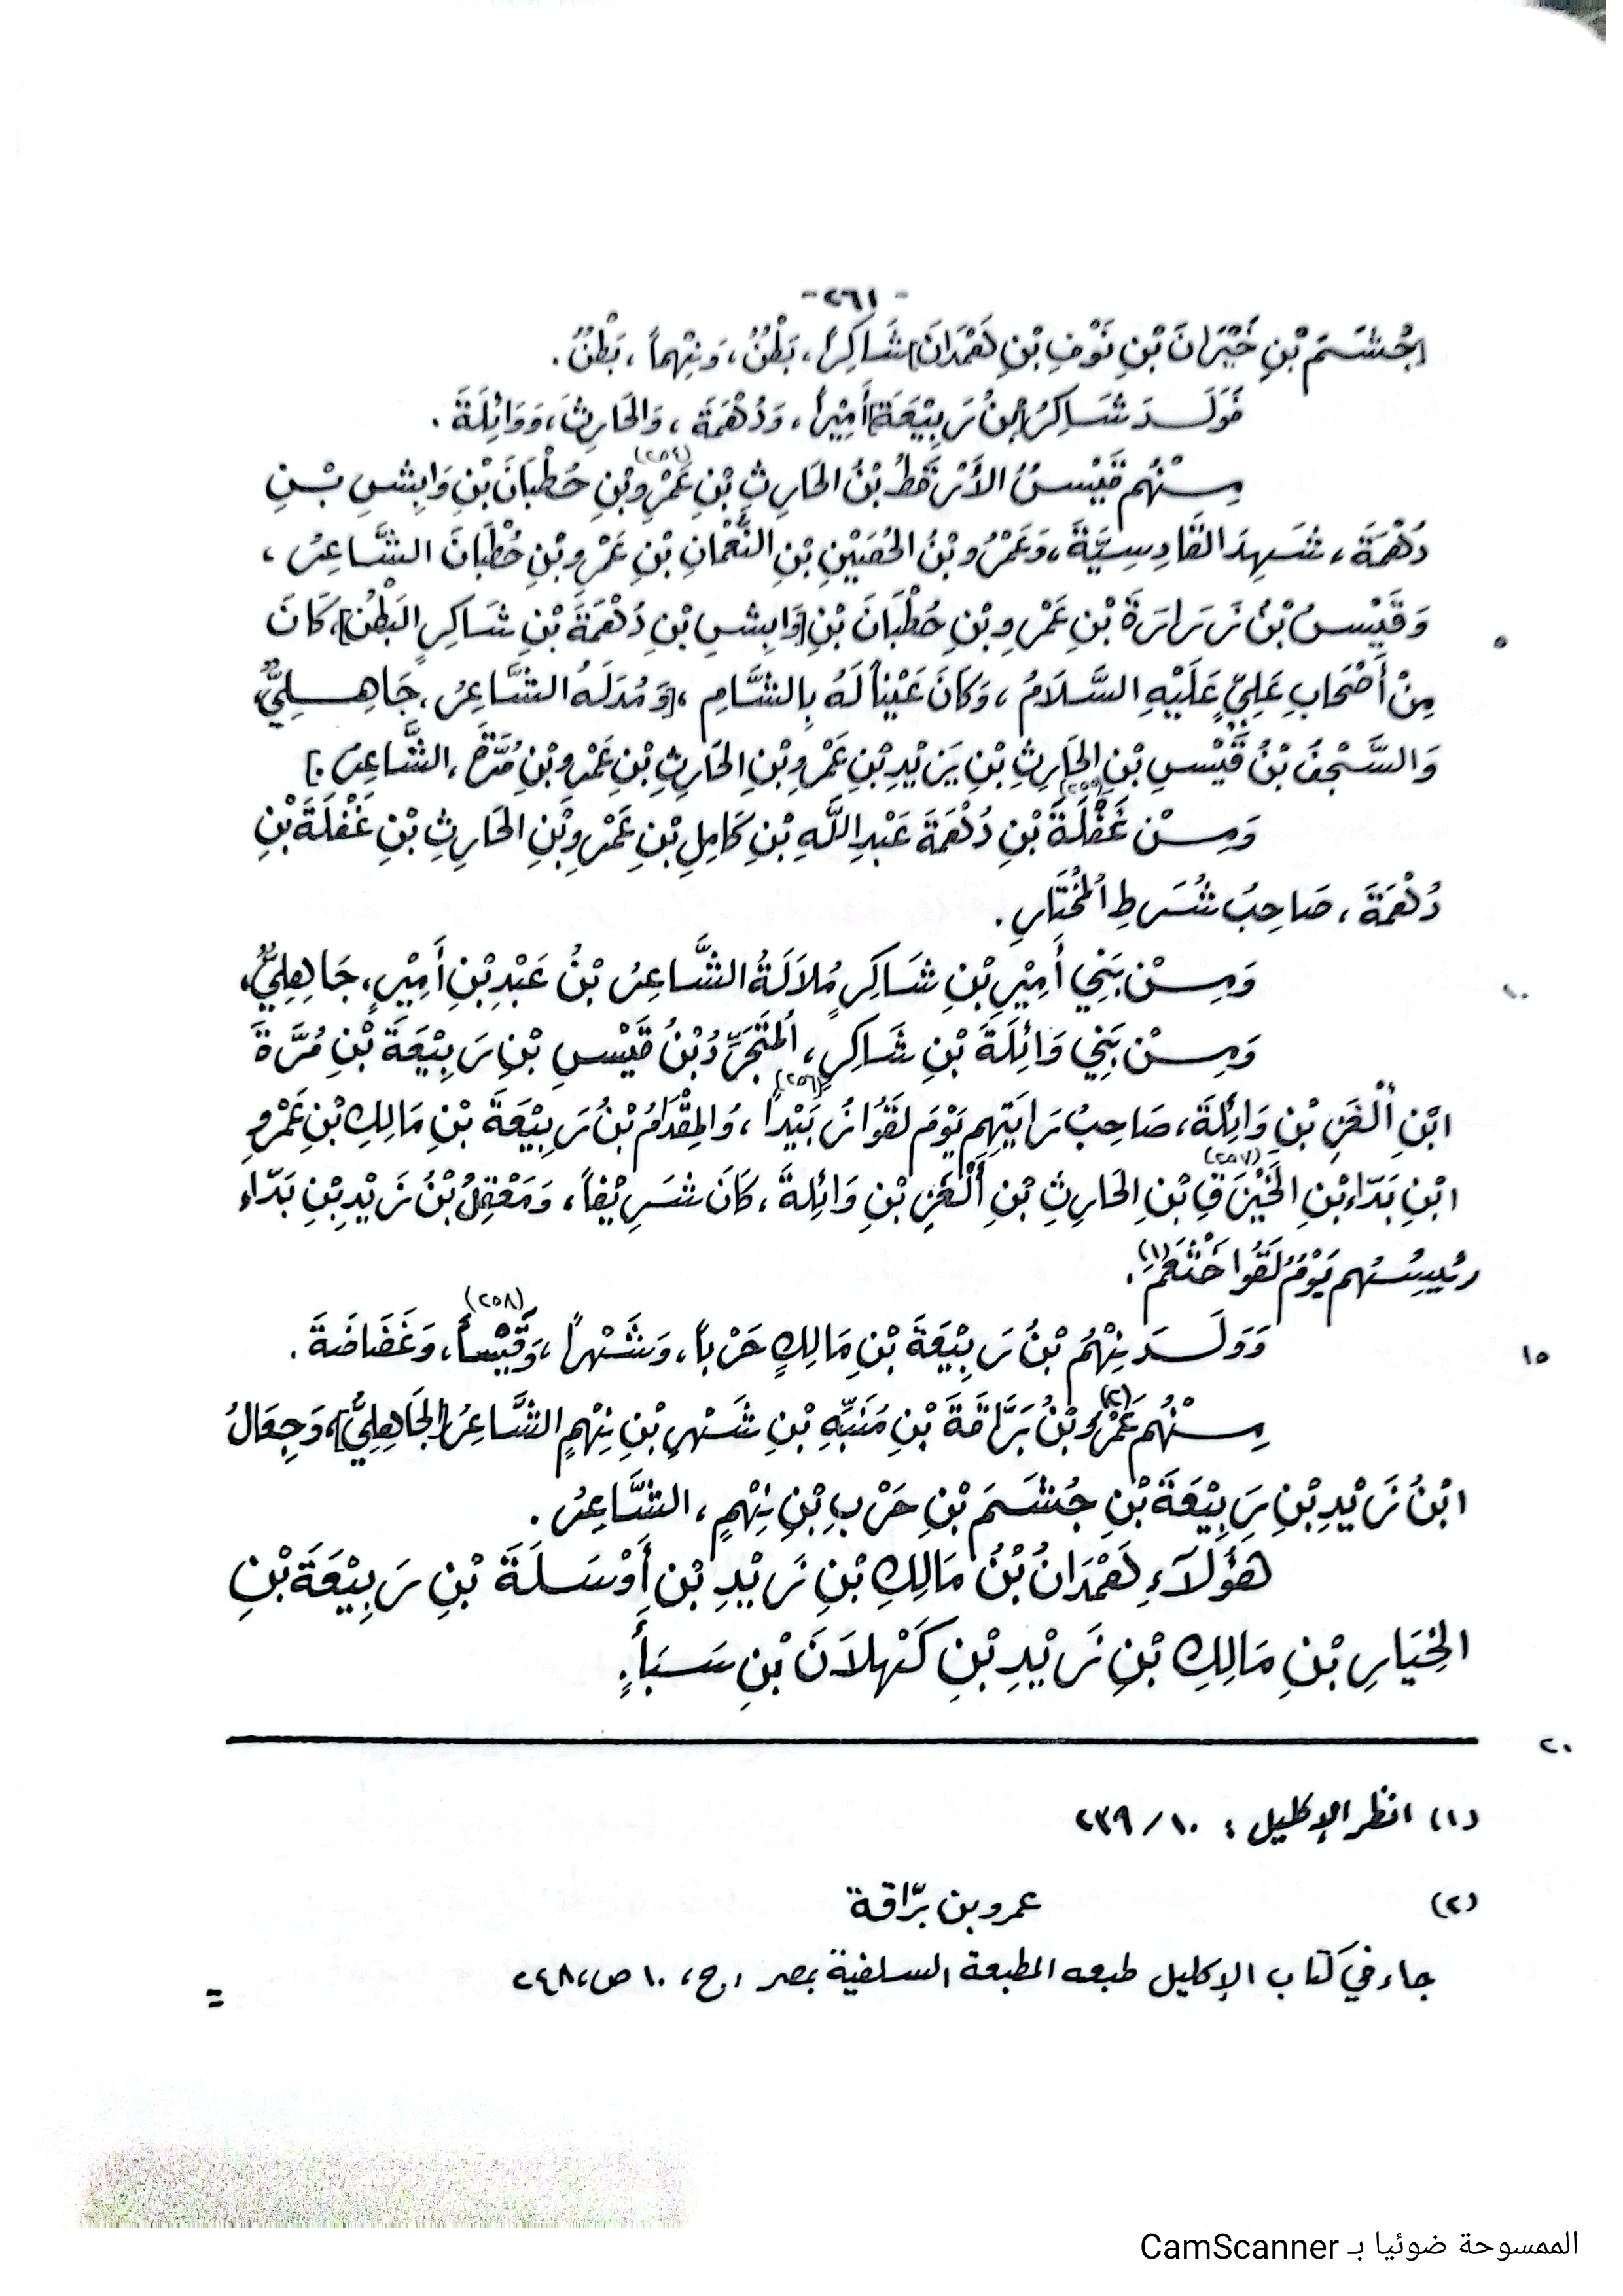 -٢٦١-
[جُشَمَ بْنِ خَيْرَانَ بْنِ نَوْفِ بْنِ هَمْدَانَ] شَاكِراً، بَطْنٌ، وَنِهْماً، بَطْنٌ.
فَوَلَدَ شَاكِرُ [بْنُ رَبِيْعَةَ] أَمِيْراً، وَدُهْمَةَ، وَالحَارِثَ، وَوَائِلَةَ.
مِنْهُم قَيْسُ الأَرْقَطُ بْنُ الحَارِثِ بْنِ عَمْرِو (٢٥٤) بْنِ حُطْبَانَ بْنِ وَابِشِ بْنِ
دُهْمَةَ، شَهِدَ القَادِسِيَّةَ، وَعَمْرُو بْنُ الحُصَيْنِ بْنِ النُّعْمَانِ بْنِ عَمْرِو بْنِ حُطْبَانَ الشَّاعِرُ،
وَقَيْسُ بْنُ زَرَارَةَ بْنِ عَمْرِو بْنِ حُطْبَانَ بْنِ [وَابِشِ بْنِ دُهْمَةَ بْنِ شَاكِرٍ البَطْنِ]، كَانَ
٥
مِنْ أَصْحَابِ عَلِيٍّ عَلَيْهِ السَّلَامُ، وَكَانَ عَيْناً لَهُ بِالشَّامِ، [وَمُدَلَهُ الشَّاعِرُ، جَاهِلِيٌّ،
وَالسَّجْفُ بْنُ قَيْسِ بْنِ الحَارِثِ بْنِ يَزِيْدِ بْنِ عَمْرِو بْنِ الحَارِثِ بْنِ عَمْرِو بْنِ مُرَّةَ، الشَّاعِرُ.]
وَمِنْ غَفْلَةَ (٢٥٥) بْنِ دُهْمَةَ عَبْدِ اللَّهِ بْنِ كَامِلِ بْنِ عَمْرِو بْنِ الحَارِثِ بْنِ غَفْلَةَ بْنِ
دُهْمَةَ، صَاحِبُ شُرَطِ المُخْتَارِ.
وَمِنْ بَنِي أَمِيْرِ بْنِ شَاكِرٍ مُلَالَةُ الشَّاعِرُ بْنُ عَبْدِ بْنِ أَمِيْرٍ، جَاهِلِيٌّ،
١٠
وَمِنْ بَنِي وَائِلَةَ بْنِ شَاكِرٍ، المُتَجَرِّدُ بْنُ قَيْسِ بْنِ رَبِيْعَةَ بْنِ مُرَّةَ
ابْنِ أَلْغَزِ بْنِ وَائِلَةَ، صَاحِبُ رَايَتِهِم يَوْمَ لَقَوْا زُبَيْداً (٢٥٦)، وَالمِقْدَامُ بْنُ رَبِيْعَةَ بْنِ مَالِكِ بْنِ عَمْرِو
ابْنِ بَدَّاءِ بْنِ الخَيْزَقِ (٢٥٧) بْنِ الحَارِثِ بْنِ أَلْغَزِ بْنِ وَائِلَةَ، كَانَ شَرِيْفاً، وَمَعْقِلُ بْنُ زَيْدِ بْنِ بَدَّاءِ
رئيسُهم يَوْمَ لَقُوا خَثْعَمَ (١).
وَوَلَدَ نِهْمُ بْنُ رَبِيْعَةَ بْنِ مَالِكٍ حَرْباً، وَشَهْراً، وَقَيْساً (٢٥٨)، وَغَضَاضَةَ.
١٥
مِنْهُم عَمْرُو (٢) بْنُ بَرَّاقَةَ بْنِ مُنَبِّهِ بْنِ شَهْرِ بْنِ نِهْمٍ الشَّاعِرُ [الجَاهِلِيُّ]، وَجِعَالُ
ابْنُ زَيْدِ بْنِ رَبِيْعَةَ بْنِ جُشَمَ بْنِ حَرْبِ بْنِ نِهْمٍ، الشَّاعِرُ.
هَؤُلَاءِ هَمْدَانُ بْنُ مَالِكِ بْنِ زَيْدِ بْنِ أَوْسَلَةَ بْنِ رَبِيْعَةَ بْنِ
الخِيَارِ بْنِ مَالِكِ بْنِ زَيْدِ بْنِ كَهْلَانَ بْنِ سَبَأٍ.
٢٠
(١) انظر الإكليل: ١٠/٢٣٩
(٢) عمرو بن برّاقة
جاء في كتاب الإكليل طبعه المطبعة السلفية بمصر، ج، ١٠ ص، ٢٤٨
=
الممسوحة ضوئيا بـ CamScanner